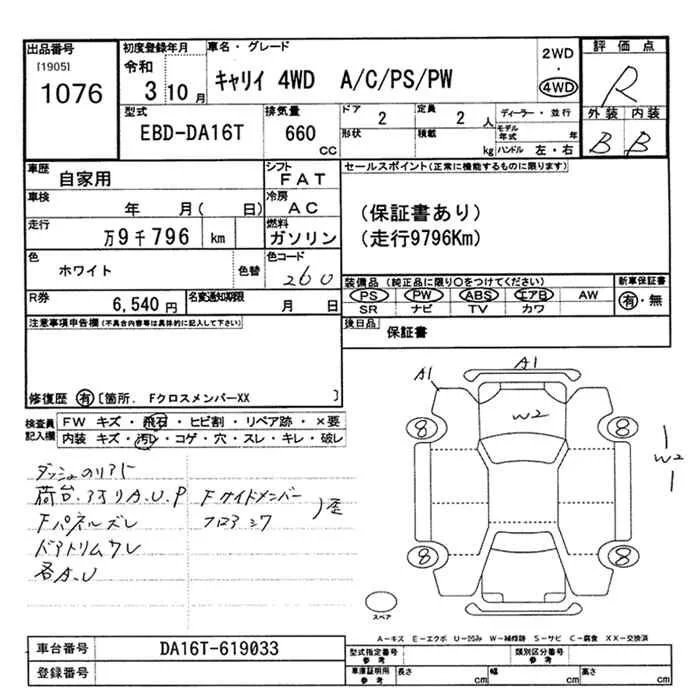 出品番号
[1905]
1076
初度登録年月
令和
3 10月
車名・グレード
キャリイ 4WD A/C/PS/PW
2WD
・
4WD
評価点
R
外装 内装
B B
型式
EBD-DA16T
排気量
660
CC
ドア 2
形状
定員 2 人
積載 kg
ディーラー・並行
モデル年式 年
ハンドル 左・右
車歴
自家用
シフト
FAT
車検
年 月( 日)
冷房
AC
走行
万9千796 km
燃料
ガソリン
色
ホワイト
色替
色コード
260
R券
6,540円
名変通知期限
月 日
セールスポイント(正常に機能するものに限ります)
(保証書あり)
(走行9796Km)
装備品(純正品に限り○をつけてください)
PS PW ABS エアB AW
SR ナビ TV カワ
新車保証書
有・無
後日品
保証書
注意事項申告欄(不具合内容等は具体的に記入して下さい)
修復歴 有 〔箇所. FクロスメンバーXX 〕
検査員
記入欄
FW キズ・飛石・ヒビ割・リペア跡・×要
内装 キズ・汚レ・コゲ・穴・スレ・キレ・破レ
荷台.アオリA.U.P
Fサイドメンバー
歪
Fパネルズレ
フロアシワ
ドアトリムワレ
各A.U
A1
A1
W2
8
8
W2
8
8
スペア
A-キズ E-エクボ U-凹み W-補修跡 S-サビ C-腐食 XX-交換済
車台番号
DA16T-619033
登録番号
型式指定番号
参考
類別区分番号
参考
車庫証明用
参考
長さ cm
幅 cm
高さ cm